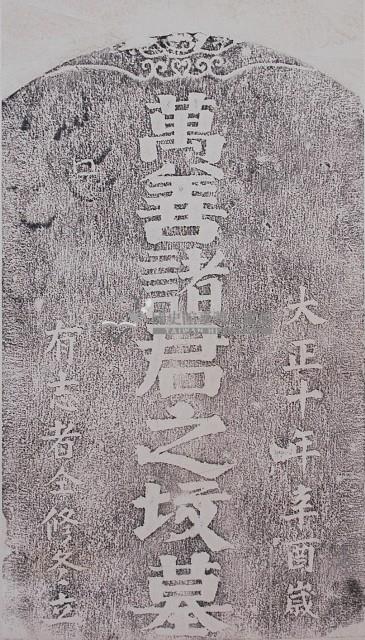 大正十年辛酉歲
萬善諸君之坟墓
有志者仝修冬立
TAIWAN